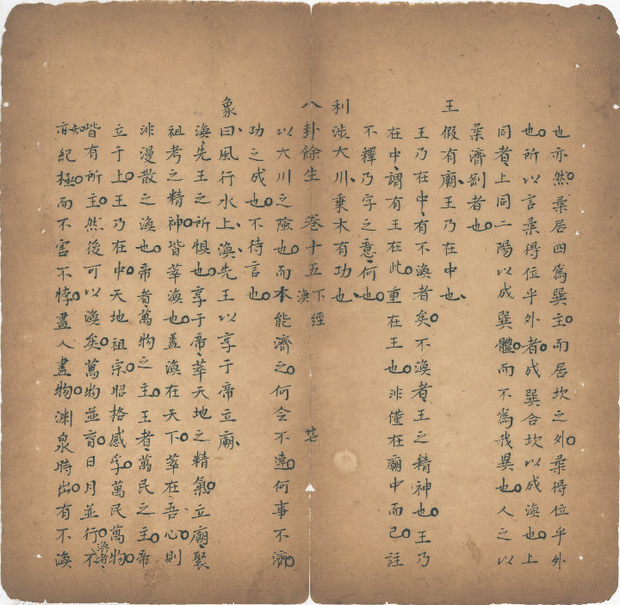 也亦然柔居四爲巽主而居坎之外柔得位乎外
也所以言柔得位乎外者成巽合坎以成渙也上
同者上同二陽以成巽體而不爲我異也人之以
柔濟剛者也
王假有廟王乃在中也
王乃在中有不渙者矣不渙者王之精神也王乃
在中謂有王在此重在王也非僅在廟中而已註
不釋乃字之意何也
利涉大川乗木有功也
八卦餘生 卷十五 下經 渙 廿
以大川之險也而木能濟之何令不逹何事不濟
功之成也不待言也
象曰風行水上渙先王以享于帝立廟
渙先王之所惧也享于帝萃天地之精氣立廟聚
祖考之精神皆萃渙也盖渙在天下萃在吾心則
非漫散之渙也帝者萬物之主王者萬民之主帝
立于上王乃在中天地祖宗昭格感孚萬民萬物
皆有所主然後可以渙矣萬物並育日月並行不
紀極而不害不悖盡人盡物淵泉時出有不渙